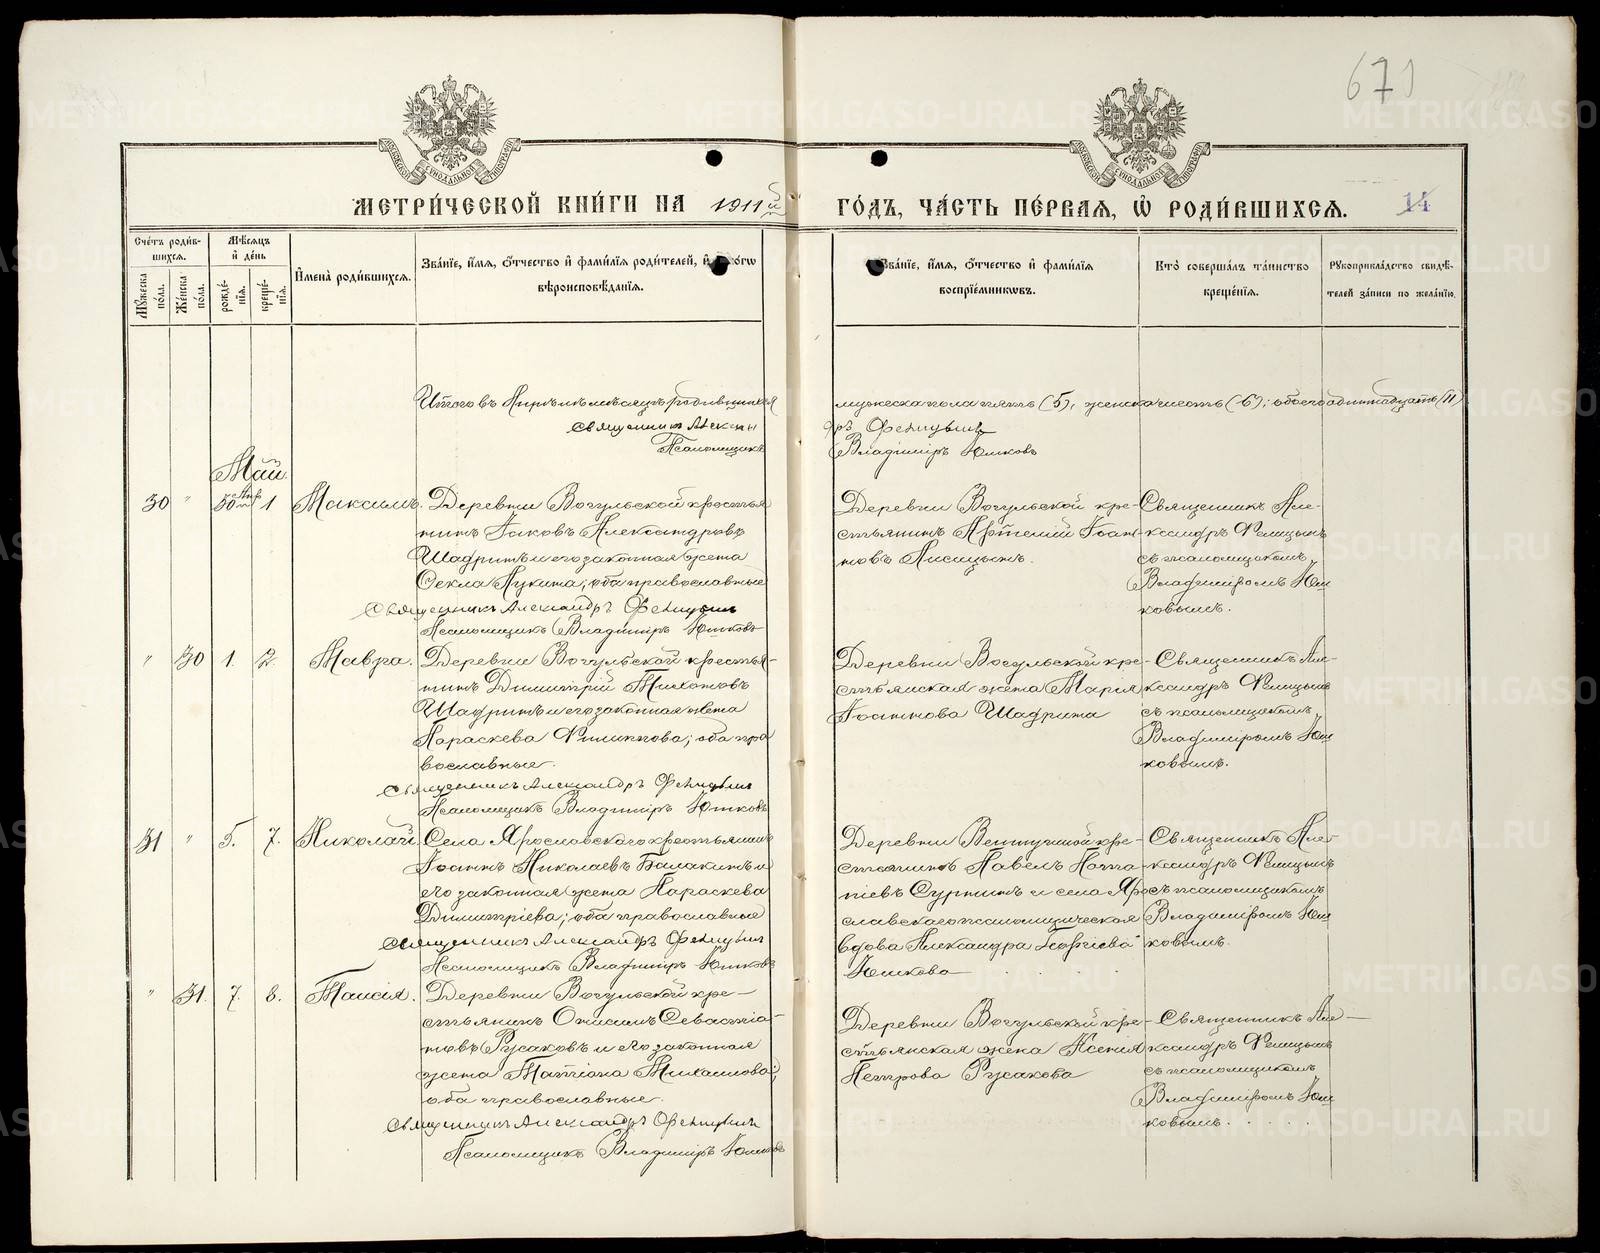 671
МЕТРИЧЕСКОЙ КНИГИ НА 1911й ГОДЪ, ЧАСТЬ ПЕРВАЯ, Ѡ РОДИВШИХСЯ. 14
Счетъ родившихся.
Мѣсяцъ и день
Мужеска пола.
Женска пола.
рожденія.
крещенія.
Имена родившихся.
Званіе, имя, отчество и фамилія родителей, и
вѣроисповѣданія.
Званіе, имя, отчество и фамилія
воспріемниковъ.
Кто совершалъ таинство
крещенія.
Рукоприкладство свидѣтелей записи по желанію.
Итого въ Апрѣлѣ мѣсяцѣ родившихся мужеска пола пять (5), женска шесть (6); обоего одиннадцать (11)
Священникъ Александръ Феницынъ
Псаломщикъ Владиміръ Юшковъ
Май.
30 " 30 Апр. 1 Максимъ.
Деревни Вогульской крестья-
нинъ Іаковъ Александровъ
Шадринъ и его законная жена
Ѳекла Лукина; оба православные
Священникъ Александръ Феницынъ
Псаломщикъ Владиміръ Юшковъ
Деревни Вогульской кре-
стьянинъ Артемій Іоан-
новъ Лисицынъ.
Священникъ Але-
ксандръ Феницынъ
съ псаломщикомъ
Владиміромъ Юш
ковымъ.
" 30 1. 2. Мавра.
Деревни Вогульской крестья-
нинъ Димитрій
Шадринъ и его законная жена
Параскева Филиппова; оба пра
вославные.
Священникъ Александръ Феницынъ
Псаломщикъ Владиміръ Юшковъ
Деревни Вогульской кре-
стьянская жена Марія
Іоаннова Шадрина
Священникъ Але-
ксандръ Феницынъ
съ псаломщикомъ
Владиміромъ Юш
ковымъ.
31 " 5. 7. Николай.
Села Ярославскаго крестьянинъ
Іоаннъ Николаевъ Балакинъ и
его законная жена Параскева
Димитріева; оба православные
Священникъ Александръ Феницынъ
Псаломщикъ Владиміръ Юшковъ
Деревни кре-
стьянинъ Павелъ
Суринъ и села Яро
славскаго псаломщическая
вдова Александра Георгіева
Юшкова
Священникъ Але-
ксандръ Феницынъ
съ псаломщикомъ
Владиміромъ Юш
ковымъ.
" 31. 7. 8. Таисія.
Деревни Вогульской кре-
стьянинъ Онисимъ Севастіа-
новъ Русаковъ и его законная
жена Татіана Михаилова;
оба православные.
Священникъ Александръ Феницынъ
Псаломщикъ Владиміръ Юшковъ
Деревни Вогульской кре-
стьянская жена Ксенія
Петрова Русакова
Священникъ Але-
ксандръ Феницынъ
съ псаломщикомъ
Владиміромъ Юш
ковымъ.
METRIKI.GASO-URAL.RU